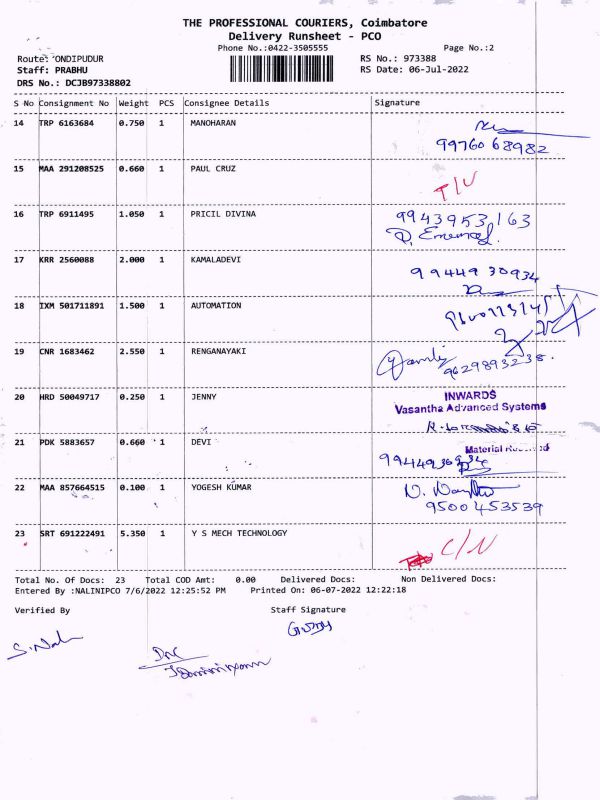 THE PROFESSIONAL COURIERS, Coimbatore
Delivery Runsheet - PCO
Phone No.:0422-3505555
Page No.:2
Route: ONDIPUDUR
RS No.: 973388
Staff: PRABHU
RS Date: 06-Jul-2022
DRS No.: DCJB97338802
S No Consignment No Weight PCS Consignee Details Signature
14 TRP 6163684 0.750 1 MANOHARAN
9976068982
15 MAA 291208525 0.660 1 PAUL CRUZ
T/U
16 TRP 6911495 1.050 1 PRICIL DIVINA 9943953163
17 KRR 2560088 2.000 1 KAMALADEVI
9944930934
18 IXM 501711891 1.500 1 AUTOMATION
19 CNR 1683462 2.550 1 RENGANAYAKI
9629893238.
20 HRD 50049717 0.250 1 JENNY INWARDS
Vasantha Advanced Systems
21 PDK 5883657 0.660 1 DEVI
Material
9944936934
22 MAA 857664515 0.100 1 YOGESH KUMAR
9500453539
23 SRT 691222491 5.350 1 Y S MECH TECHNOLOGY
C/N
Total No. Of Docs: 23 Total COD Amt: 0.00 Delivered Docs: Non Delivered Docs:
Entered By :NALINIPCO 7/6/2022 12:25:52 PM Printed On: 06-07-2022 12:22:18
Verified By Staff Signature